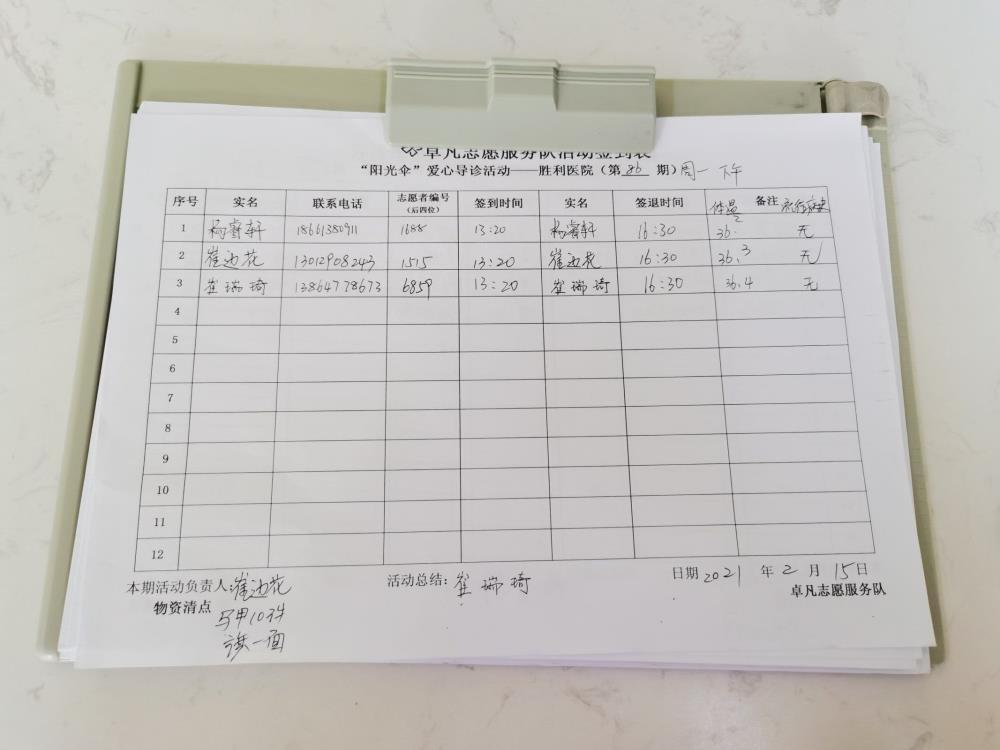 卓凡志愿服务队活动签到表
“阳光伞”爱心导诊活动——胜利医院（第 86 期）周一 下午
序号 实名 联系电话 志愿者编号（后四位） 签到时间 实名 签退时间 体温 备注
1 杨睿轩 18661380911 1688 13:20 杨睿轩 16:30 36. 无
2 崔边花 13012908243 1515 13:20 崔边花 16:30 36.3 无
3 崔瑞琦 13864778673 6859 13:20 崔瑞琦 16:30 36.4 无
4
5
6
7
8
9
10
11
12
本期活动负责人:崔边花 活动总结: 崔瑞琦 日期 2021 年 2 月 15 日
物资清点 卓凡志愿服务队
马甲10件
旗一面